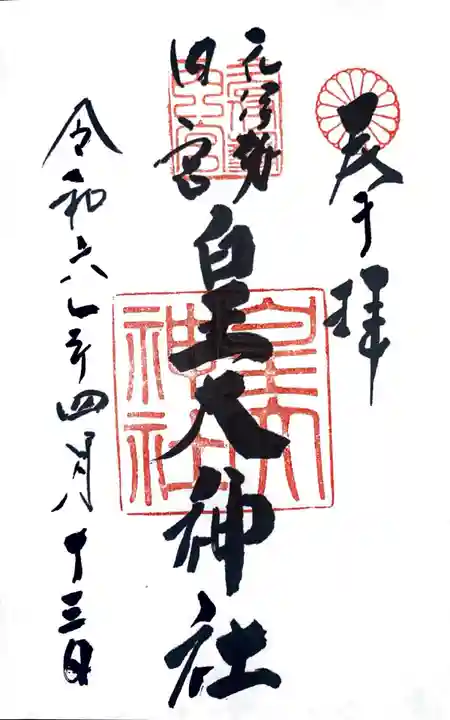 奉拝
元伊勢
内宮
皇大神社
皇大
神社
令和六年四月十三日